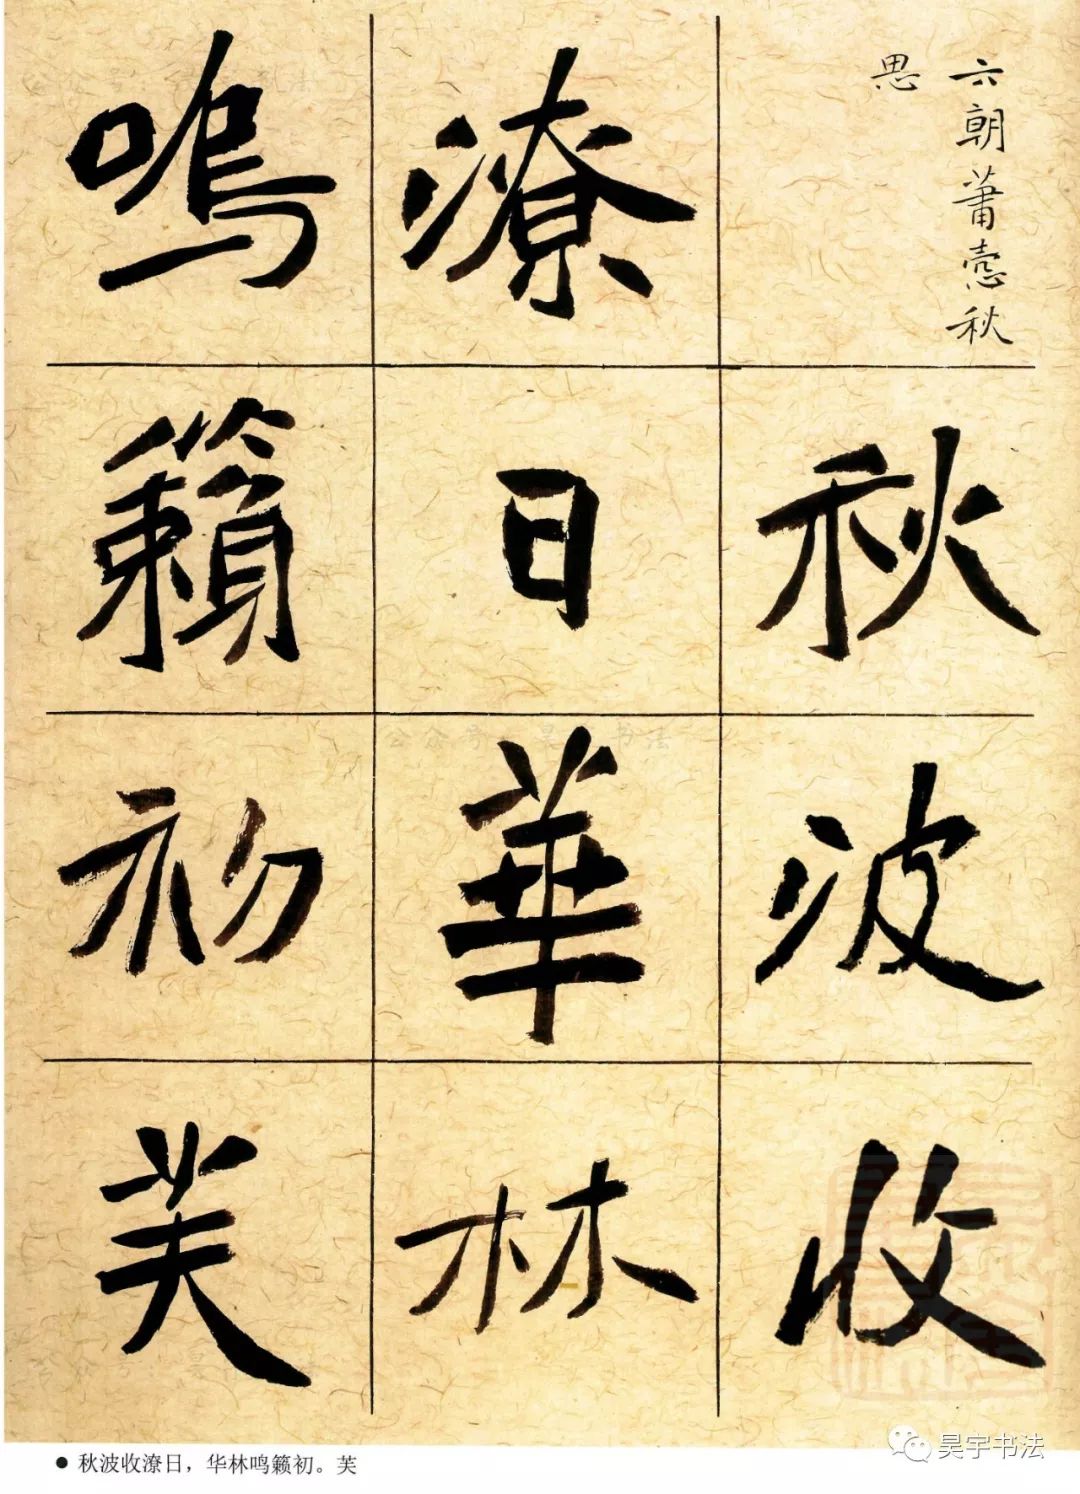 六朝萧悫秋
思
秋波收
潦日華林
鳴籟初芙
公众号 昊宇书法
● 秋波收潦日，华林鸣籁初。芙
昊宇书法